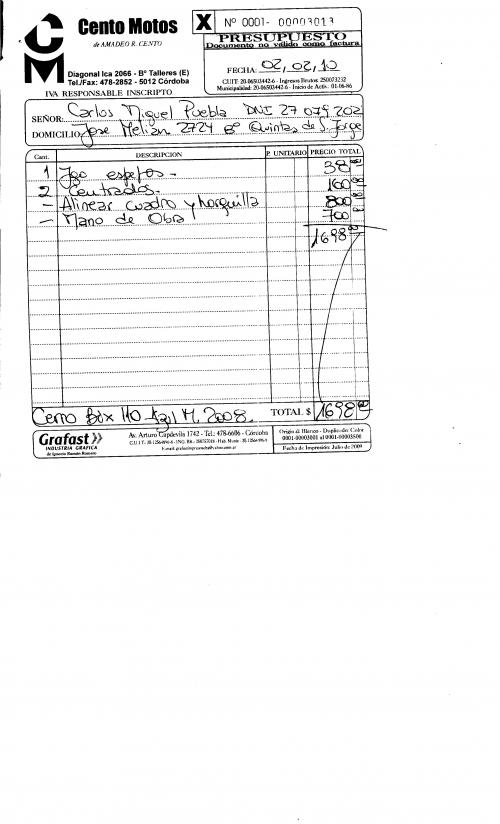 CM
Cento Motos
de AMADEO R. CENTO
Diagonal Ica 2066 - Bº Talleres (E)
Tel./Fax: 478-2852 - 5012 Córdoba
IVA RESPONSABLE INSCRIPTO
X
Nº 0001- 00003013
PRESUPUESTO
Documento no válido como factura
FECHA: 02, 02, 10
CUIT: 20-06503442-6 - Ingresos Brutos: 250073232
Municipalidad: 20-06503442-6 - Inicio de Activ.: 01-06-86
SEÑOR: Carlos Miguel Puebla DNI 27 079 202
DOMICILIO: Jose Melian 2724 Bº Quintas de S. Jorge
Cant. DESCRIPCION P. UNITARIO PRECIO TOTAL
1 Jgo espejos - 38 00
2 Centrados. 100 00
- Alinear cuadro y horquilla 800 00
- Mano de Obra 700 00
1698 00
Cerro Bix 110 Azul M. 2008. TOTAL $ 1698 00
Grafast
INDUSTRIA GRAFICA
de Ignacio Ramón Romero
Av. Arturo Capdevila 1742 - Tel.: 478-6606 - Córdoba
Origin al Blanco - Duplicado: Color
0001-00003001 al 0001-00003500
Fecha de Impresión: Julio de 2009